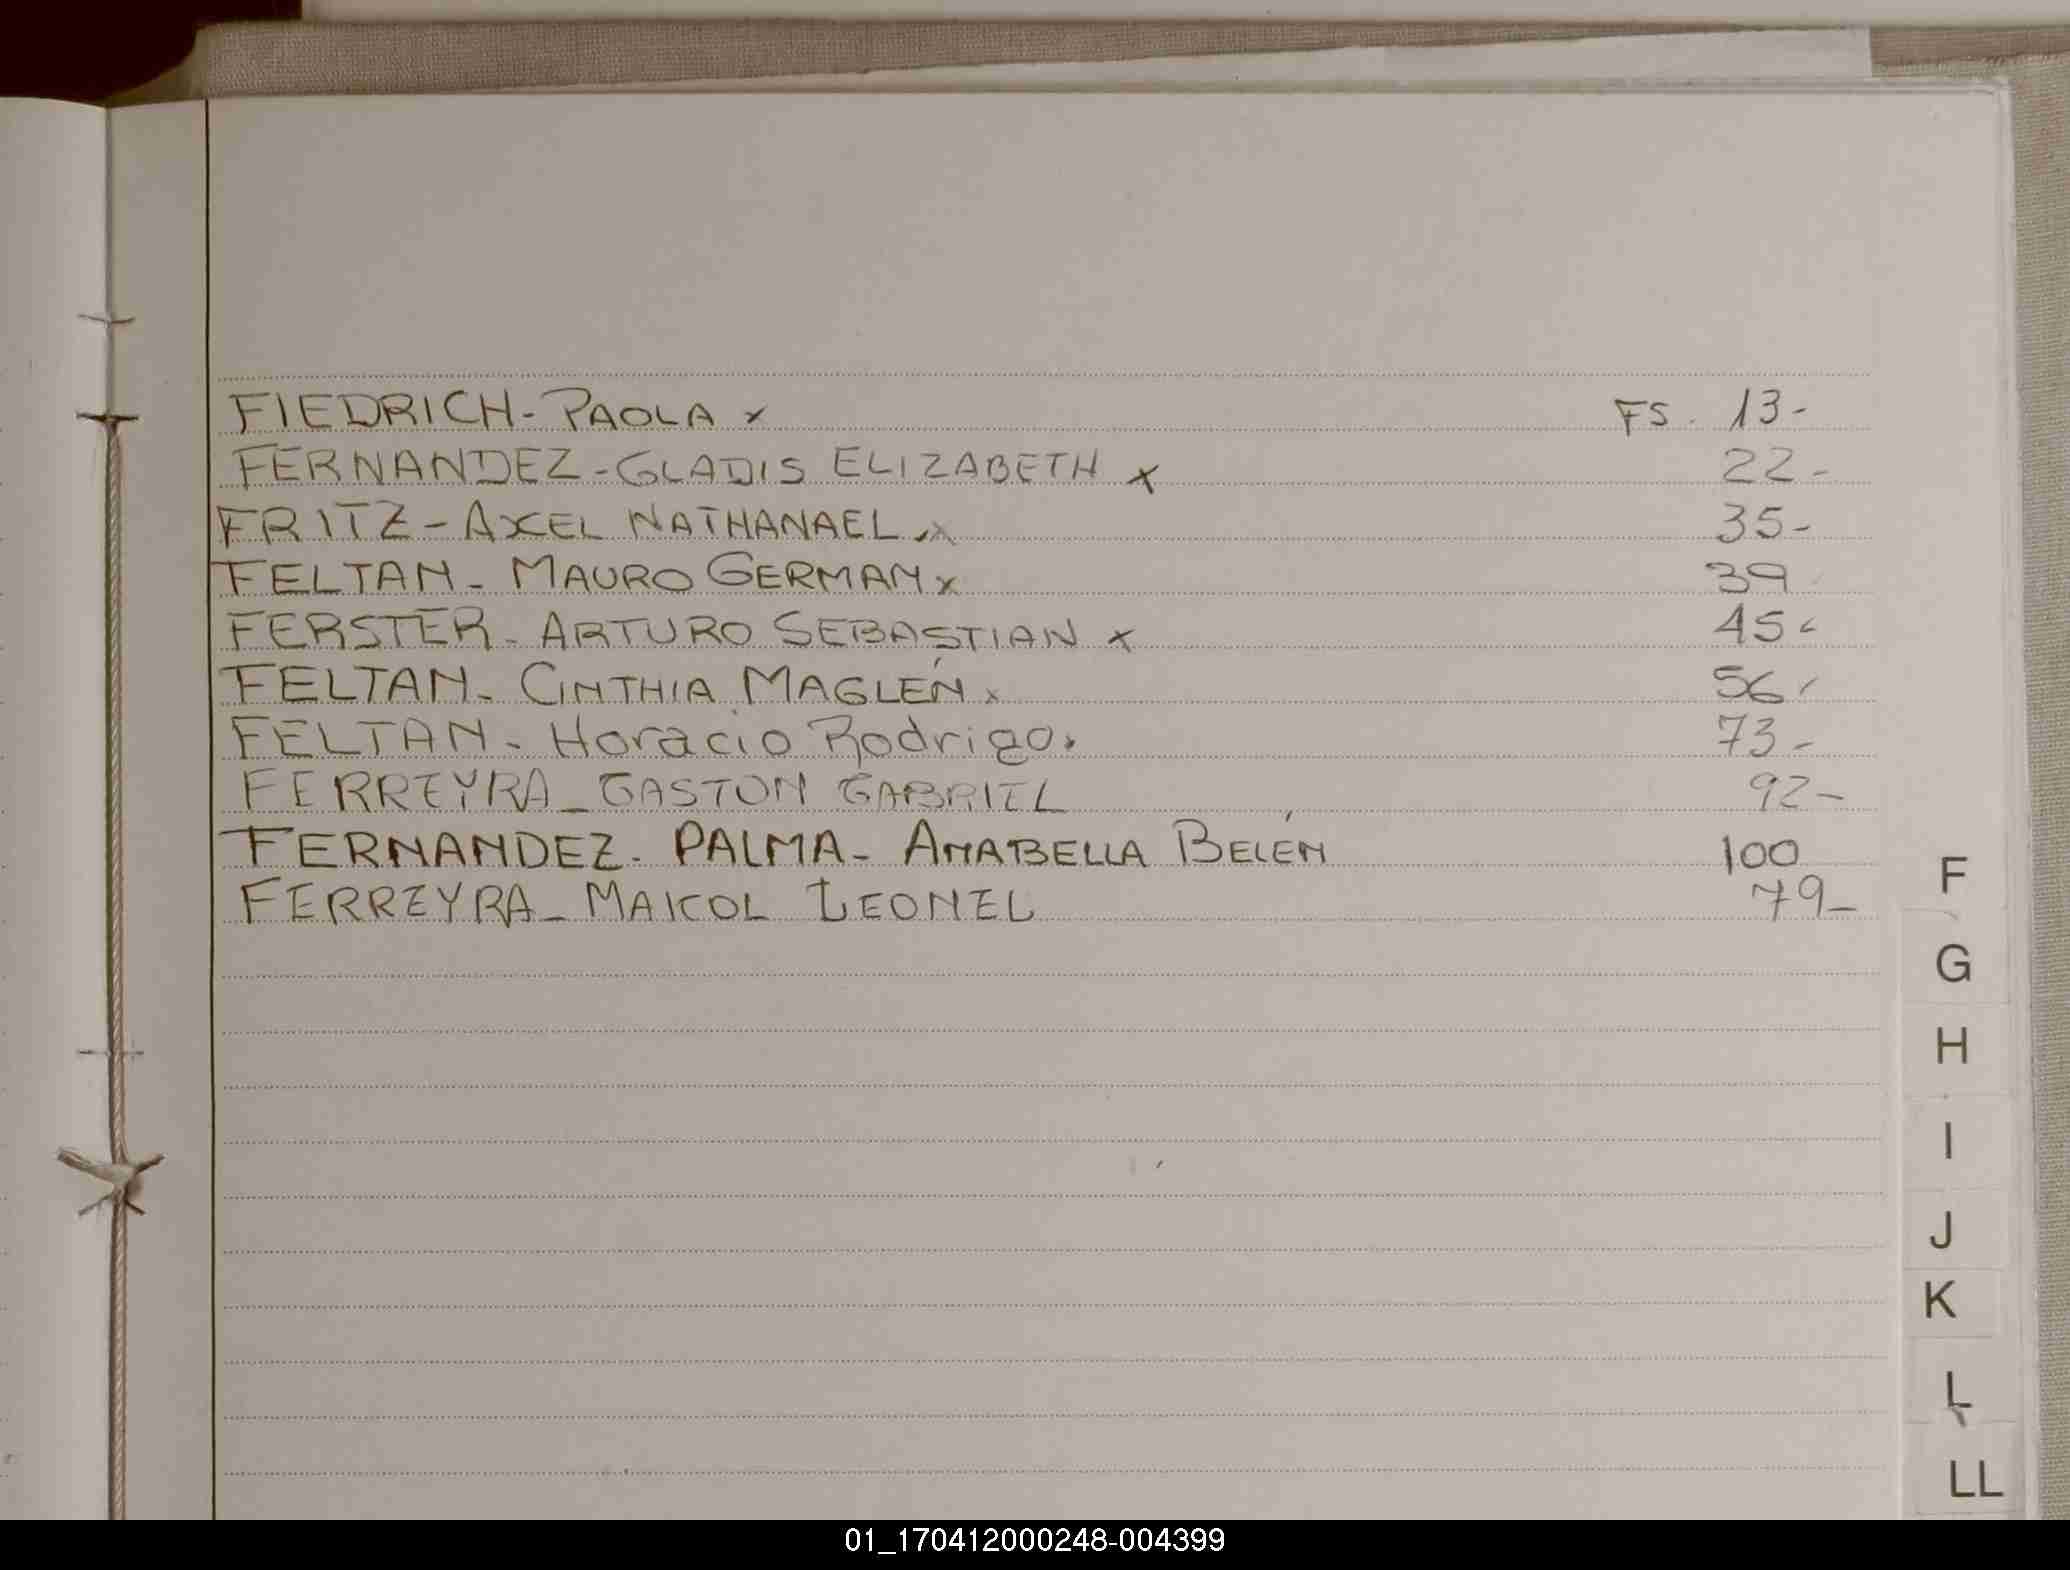 FIEDRICH - PAOLA x FS. 13-
FERNANDEZ - GLADIS ELIZABETH x 22-
FRITZ - AXEL NATHANAEL x 35-
FELTAN - MAURO GERMAN x 39
FERSTER - ARTURO SEBASTIAN x 45-
FELTAN - CINTHIA MAGLÉN x 56-
FELTAN - Horacio Rodrigo. 73-
FERREYRA - GASTON GABRIEL 92-
FERNANDEZ - PALMA - ANABELLA BELÉN 100
FERREYRA - MAICOL LEONEL 79-
F
G
H
I
J
K
L
LL
01_170412000248-004399